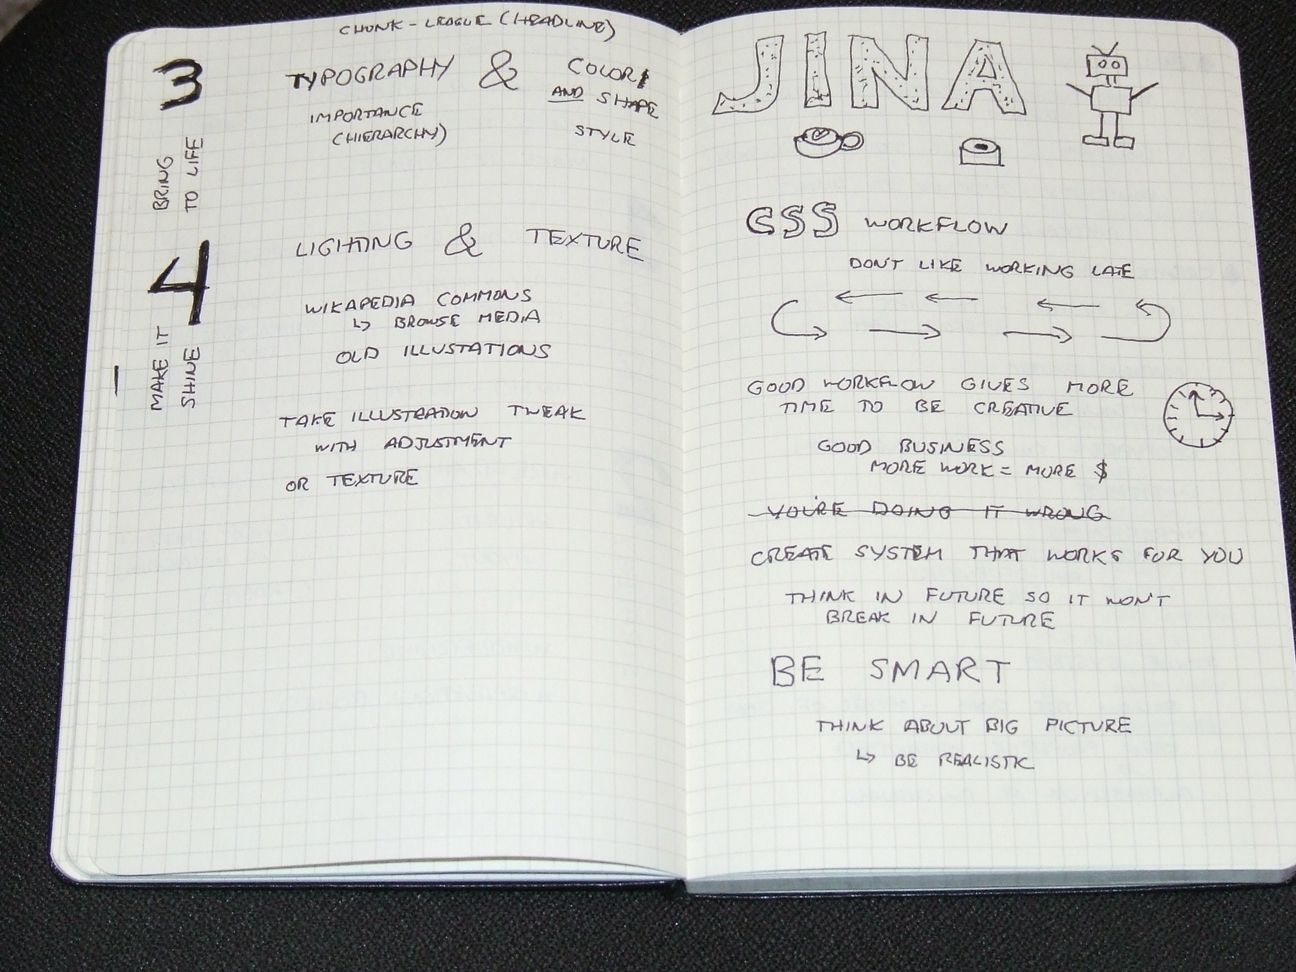 CHUNK - LEAGUE (HEADLINE)
3
BRING
TO LIFE
TYPOGRAPHY & COLOR
IMPORTANCE
(HIERARCHY)
AND SHAPE
STYLE
4
MAKE IT
SHINE
LIGHTING & TEXTURE
WIKAPEDIA COMMONS
↳ BROWSE MEDIA
OLD ILLUSTATIONS
TAKE ILLUSTRATION TWEAK
WITH ADJUSTMENT
OR TEXTURE
JINA
CSS WORKFLOW
DON'T LIKE WORKING LATE
GOOD WORKFLOW GIVES MORE
TIME TO BE CREATIVE
GOOD BUSINESS
MORE WORK = MORE $
YOU'RE DOING IT WRONG
CREATE SYSTEM THAT WORKS FOR YOU
THINK IN FUTURE SO IT WON'T
BREAK IN FUTURE
BE SMART
THINK ABOUT BIG PICTURE
↳ BE REALISTIC